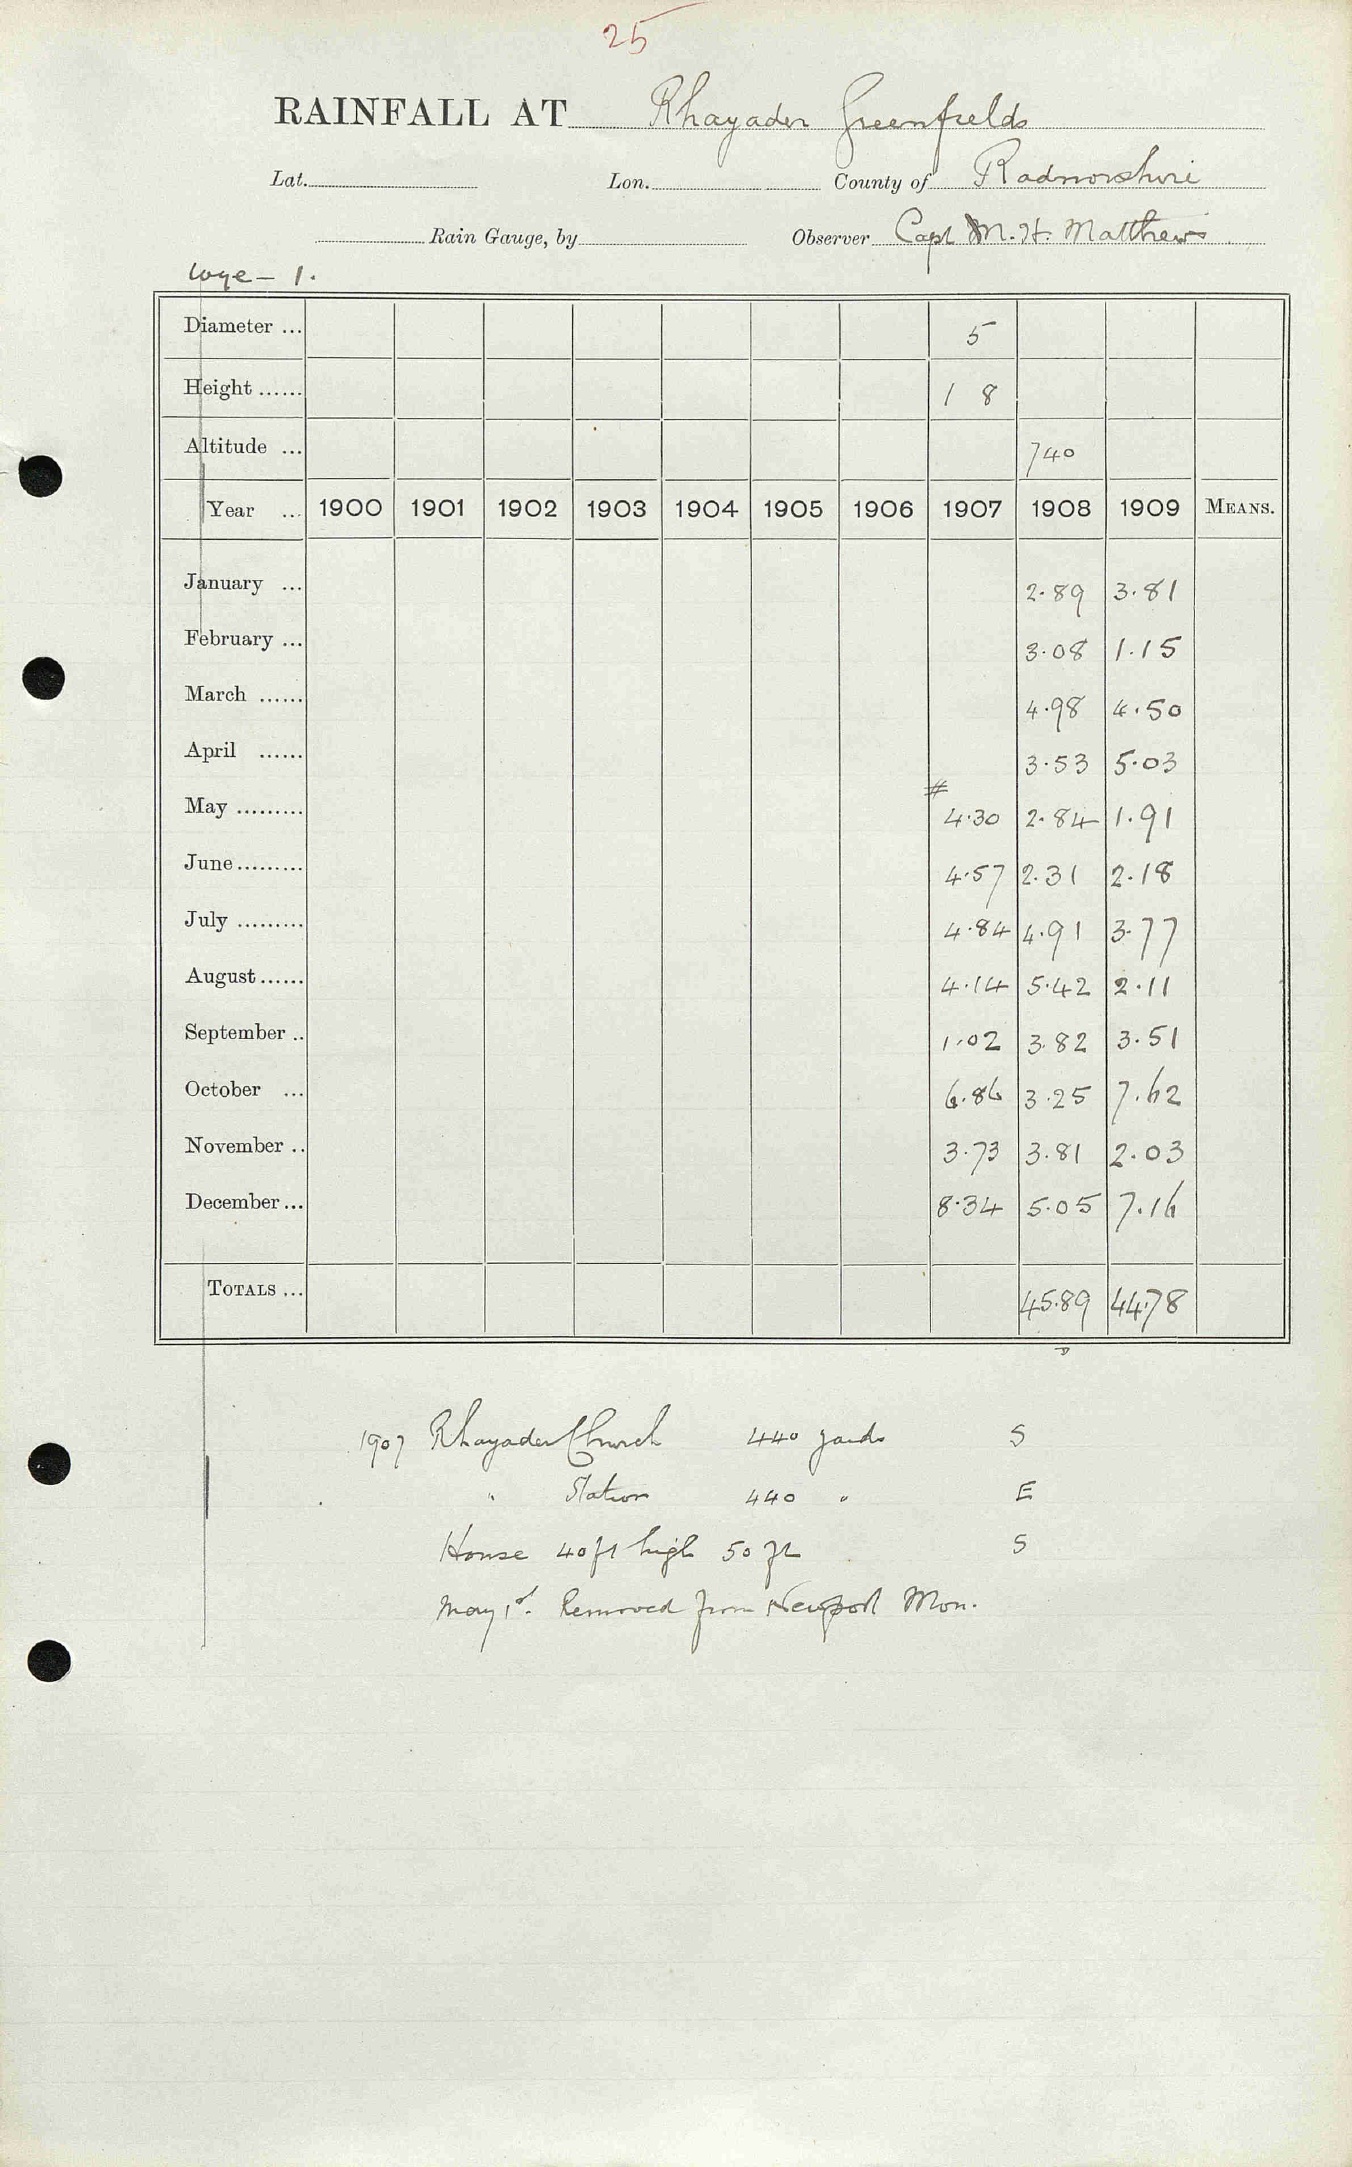 25
RAINFALL AT Rhayader Greenfields
Lat. Lon. County of Radnorshire
Rain Gauge, by Observer Capt M. H. Matthews
Wye - 1.
Diameter ... 5
Height ...... 1 8
Altitude ... 740
Year ... 1900 1901 1902 1903 1904 1905 1906 1907 1908 1909 MEANS.
January ... 2.89 3.81
February ... 3.08 1.15
March ...... 4.98 4.50
April ...... 3.53 5.03
#
May ......... 4.30 2.84 1.91
June ......... 4.57 2.31 2.18
July ......... 4.84 4.91 3.77
August ...... 4.14 5.42 2.11
September .. 1.02 3.82 3.51
October ... 6.86 3.25 7.62
November .. 3.73 3.81 2.03
December ... 8.34 5.05 7.16
TOTALS ... 45.89 44.78
1907 Rhayader Church 440 yards S
" Station 440 " E
House 40 ft high 50 ft S
May 1st. Removed from Newport Mon.